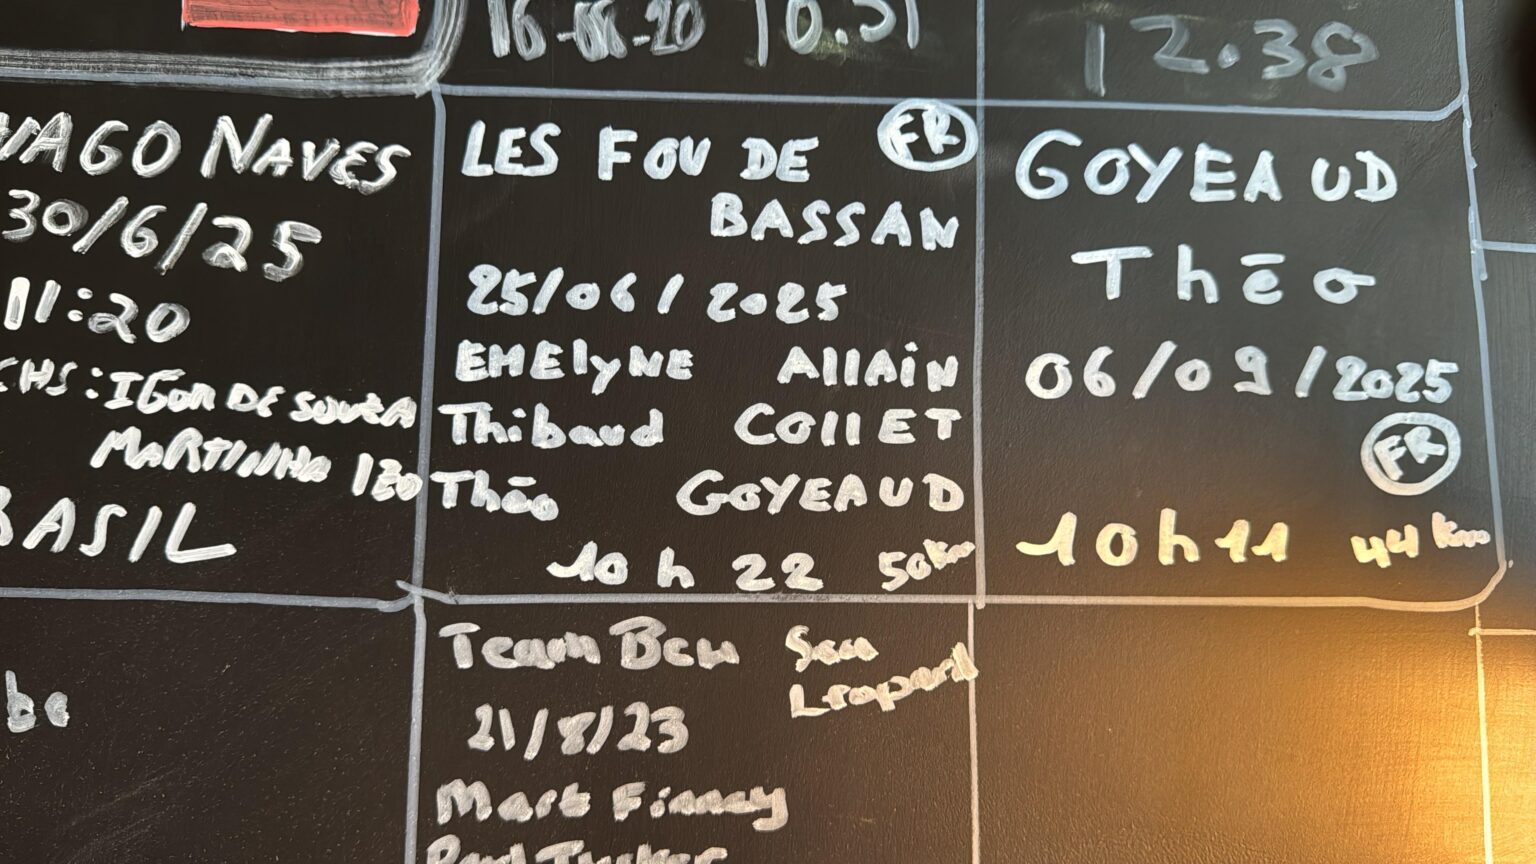 16-06-20 10.51
12.38
IAGO NAVES
30/6/25
11:20
CHS: IGOR DE SOUZA
MARTINHA
BASIL
LES FOU DE FR
BASSAN
25/06/2025
EMElyNE AllAiN
Thibaud COllET
Théo GOYEAUD
10 h 22 50km
GOYEAUD
Théo
06/09/2025
FR
10h11 44 km
Team Ben Sea
Leopard
21/8/23
Mark Finney
Paul Tucker